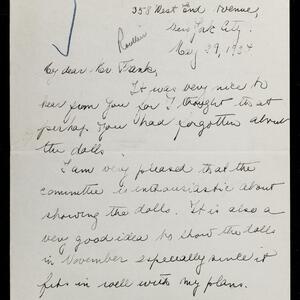 358 West End Avenue,
New York City.
May 29, 1934
My dear Mr Frank,
It was very nice to
hear from you for I thought that
perhaps you had forgotten about
the dolls.
I am very pleased that the
committee is enthusiastic about
showing the dolls. It is also a
very good idea to show the dolls
in November especially since it
fits in well with my plans.